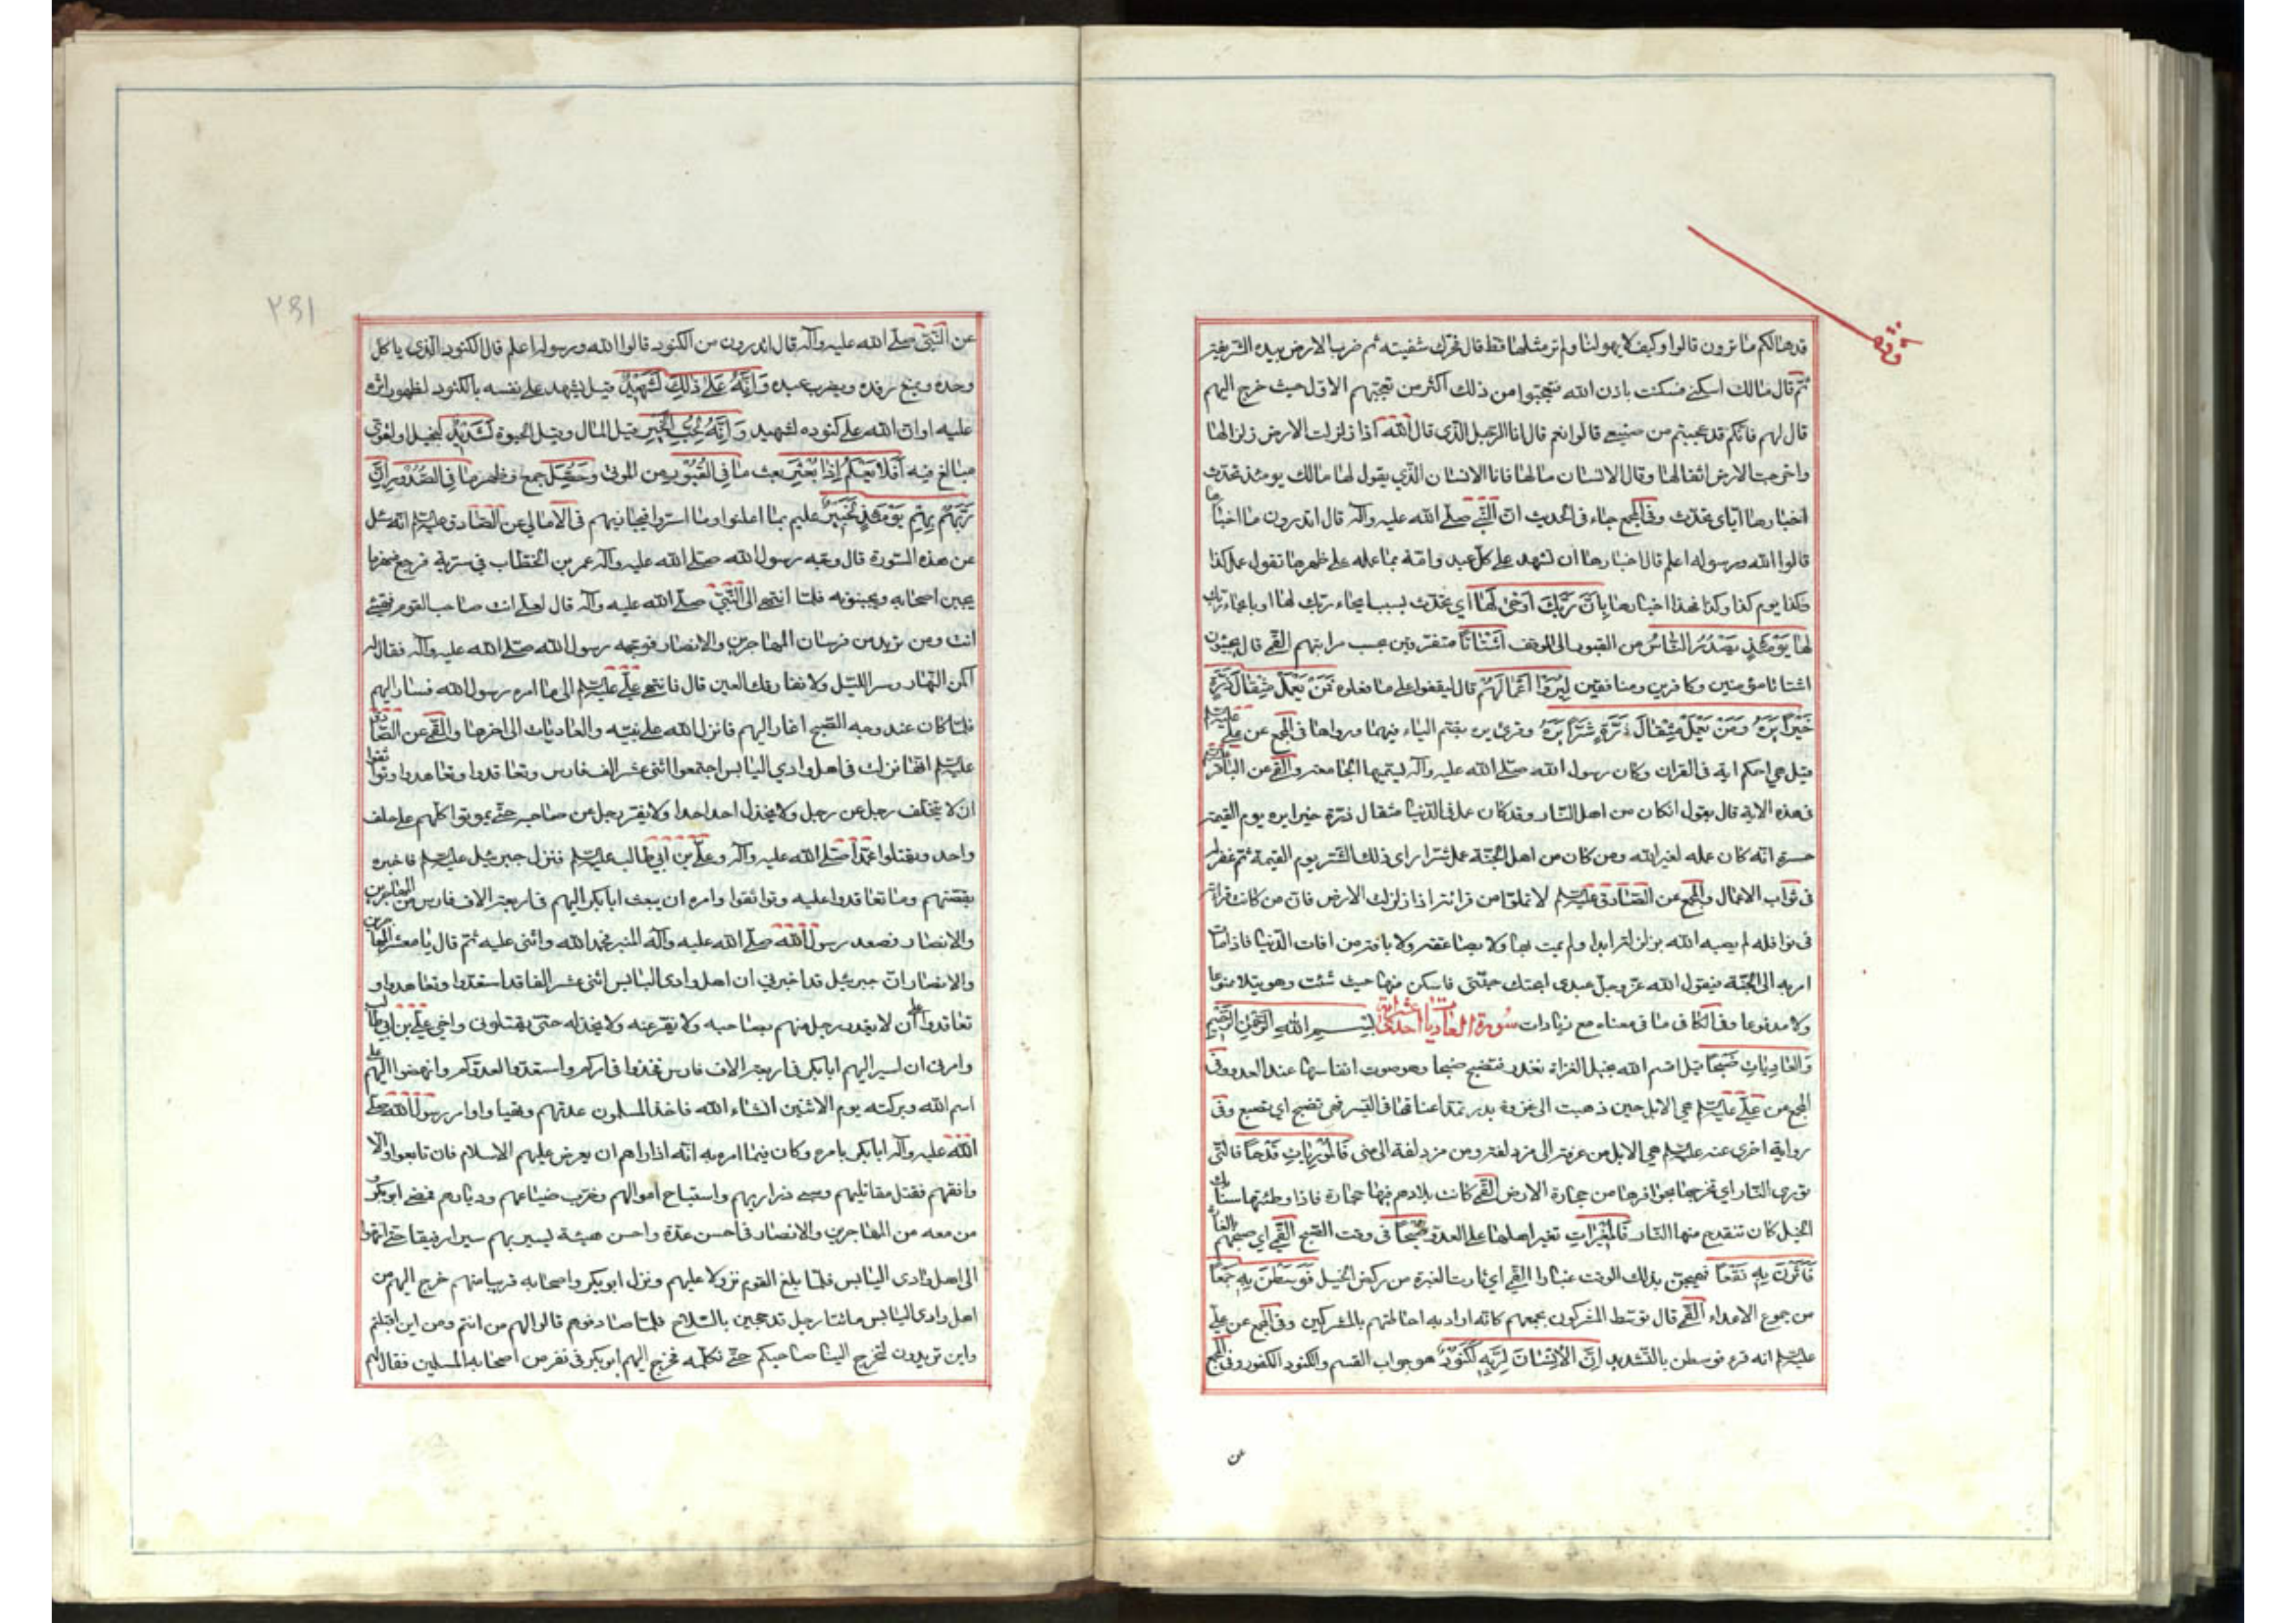 قد هالكم ما ترون قالوا وكيف لا يهولنا ولم نر مثلها قط قال فحرك شفتيه ثم ضرب الارض بيده الشريفة
ثم قال مالك اسكني فسكنت باذن الله فتعجبوا من ذلك اكثر من تعجبهم الاول حيث خرج اليهم
قال لهم فانكم قد عجبتم من صنيعي قالوا نعم قال انا الرجل الذي قال الله اذا زلزلت الارض زلزالها
واخرجت الارض اثقالها وقال الانسان مالها فانا الانسان الذي يقول لها مالك يومئذ تحدث
اخبارها اياي تحدث وفي المجمع جاء في الحديث ان النبي صلى الله عليه وآله قال اتدرون ما اخبارها
قالوا الله ورسوله اعلم قال اخبارها ان تشهد على كل عبد وامة بما عمله على ظهرها تقول عمل كذا
وكذا يوم كذا وكذا فهذا اخبارها بِاَنَّ رَبَّكَ اَوْحىٰ لَهٰا اي تحدث بسبب ايحاء ربك لها او بايحاء ربك
لها يَوْمَئِذٍ يَصْدُرُ النّٰاسُ من القبور الى الموقف اَشْتٰاتًا متفرقين بحسب مراتبهم القمي قال يجيئون
اشتاتا مؤمنين وكافرين ومنافقين لِيُرَوْا اَعْمٰالَهُمْ قال ليقفوا على ما فعلوه فَمَنْ يَعْمَلْ مِثْقٰالَ ذَرَّةٍ
خَيْرًا يَرَهُ وَمَنْ يَعْمَلْ مِثْقٰالَ ذَرَّةٍ شَرًّا يَرَهُ وقرئ يره بضم الياء فيهما ورواها في المجمع عن علي عليه السلام
قيل هي احكم اية في القران وكان رسول الله صلى الله عليه وآله يسميها الجامعة والقمي عن الباقر عليه السلام
في هذه الاية قال يقول ان كان من اهل النار وقد كان عمل في الدنيا مثقال ذرة خيرا يره يوم القيمة
حسرة انه كان عمله لغير الله ومن كان من اهل الجنة عمل شرا راى ذلك الشر يوم القيمة ثم غفر له
في ثواب الاعمال والمجمع عن الصادق عليه السلام لا تملوا من قرائة اذا زلزلت الارض فان من كانت قرائته
في نوافله لم يصبه الله بزلزلة ابدا ولم يمت بها ولا بصاعقة ولا بافة من افات الدنيا فاذا مات
امر به الى الجنة فيقول الله عز وجل عبدي ابحتك جنتي فاسكن منها حيث شئت وهويت لا ممنوعا
ولا مدفوعا وفي الكافي ما في معناه مع زيادات سورة العاديات احدى عشر اية بِسْمِ اللهِ الرَّحْمٰنِ الرَّحِيمِ
وَالْعٰادِيٰاتِ ضَبْحًا قيل اقسم الله بخيل الغزاة تعدو فتضبح ضبحا وهو صوت انفاسها عند العدو وفي
المجمع عن علي عليه السلام هي الابل حين ذهبت الى غزوة بدر تمد اعناقها في السير فهي تضبح اي تضبع وفي
رواية اخرى عنه عليه السلام هي الابل من عرفة الى مزدلفة ومن مزدلفة الى منى فَالْمُورِيٰاتِ قَدْحًا فالتي
توري النار اي تخرجها بحوافرها من حجارة الارض القمي كانت بلادهم فيها حجارة فاذا وطئتها سنابك
الخيل كان تنقدح منها النار فَالْمُغِيرٰاتِ تغير اهلها على العدو صُبْحًا في وقت الصبح القمي اي صبحهم بالغارة
فَاَثَرْنَ بِهِ نَقْعًا فهيجن بذلك الوقت غبارا القمي اي ثارت الغبرة من ركض الخيل فَوَسَطْنَ بِهِ جَمْعًا
من جموع الاعداء القمي قال توسط المشركون بجمعهم كانه اراد به احاطتهم بالمشركين وفي المجمع عن علي
عليه السلام انه قرء فوسطن بالتشديد اِنَّ الْاِنْسٰانَ لِرَبِّهِ لَكَنُودٌ هو جواب القسم والكنود الكفور وفي المجمع
عن
٢٩١
عن النبي صلى الله عليه وآله قال اتدرون من الكنود قالوا الله ورسوله اعلم قال الكنود الذي ياكل
وحده ويمنع رفده ويضرب عبده وَاِنَّهُ عَلىٰ ذٰلِكَ لَشَهِيدٌ قيل يشهد على نفسه بالكنود لظهور اثره
عليه او ان الله على كنوده لشهيد وَاِنَّهُ لِحُبِّ الْخَيْرِ قيل المال وقيل الحيوة لَشَدِيدٌ لبخيل او لقوي
مبالغ فيه اَفَلٰا يَعْلَمُ اِذٰا بُعْثِرَ بعث مٰا فِي الْقُبُورِ من الموتى وَحُصِّلَ جمع وظهر مٰا فِي الصُّدُورِ اِنَّ
رَبَّهُمْ بِهِمْ يَوْمَئِذٍ لَخَبِيرٌ عليم بما اعلنوا وما اسروا فيجازيهم في الامالي عن الصادق عليه السلام انه سئل
عن هذه السورة قال وجه رسول الله صلى الله عليه وآله عمر بن الخطاب في سرية فرجع منهزما
يجبن اصحابه ويجبنونه فلما انتهى الى النبي صلى الله عليه وآله قال لعلي انت صاحب القوم فتهيئ
انت ومن تريد من فرسان المهاجرين والانصار فوجهه رسول الله صلى الله عليه وآله فقال له
اكمن النهار وسر الليل ولا تفارقك العين قال فانتهى علي عليه السلام الى ما امره رسول الله فسار اليهم
فلما كان عند وجه الصبح اغار اليهم فانزل الله على نبيه والعاديات الى اخرها والقمي عن الصادق
عليه السلام انها نزلت في اهل وادي اليابس اجتمعوا اثنى عشر الف فارس وتعاقدوا وتعاهدوا وتواثقوا
ان لا يتخلف رجل عن رجل ولا يخذل احد احدا ولا يفر رجل عن صاحبه حتى يموتوا كلهم على حلف
واحد ويقتلوا محمدا صلى الله عليه وآله وعلي بن ابي طالب عليه السلام فنزل جبرئيل عليه السلام فاخبره
بقصتهم وما تعاقدوا عليه وتواثقوا وامره ان يبعث ابا بكر اليهم في اربعة الاف فارس من المهاجرين
والانصار فصعد رسول الله صلى الله عليه وآله المنبر فحمد الله واثنى عليه ثم قال يا معشر المهاجرين
والانصار ان جبرئيل قد اخبرني ان اهل وادي اليابس اثنى عشر الفا قد استعدوا وتعاهدوا و
تعاقدوا على ان لا يغدر رجل منهم بصاحبه ولا يفر عنه ولا يخذله حتى يقتلوني واخي علي بن ابي طالب
وامرني ان اسير اليهم ابا بكر في اربعة الاف فارس فخذوا في امركم واستعدوا لعدوكم وانهضوا اليهم على
اسم الله وبركته يوم الاثنين انشاء الله فاخذ المسلمون عدتهم وتهياوا وامر رسول الله صلى
الله عليه وآله ابا بكر بامره وكان فيما امره به انه اذا راهم ان يعرض عليهم الاسلام فان تابعوا والا
واقعهم فقتل مقاتليهم وسبي ذراريهم واستباح اموالهم وخرب ضياعهم وديارهم فمضى ابو بكر و
من معه من المهاجرين والانصار في احسن عدة واحسن هيئة يسير بهم سيرا رفيقا حتى انتهوا
الى اهل وادي اليابس فلما بلغ القوم نزولا عليهم ونزل ابو بكر واصحابه قريبا منهم خرج اليهم من
اهل وادي اليابس مائتا رجل مدججين بالسلاح فلما صادفوهم قالوا لهم من انتم ومن اين اقبلتم
واين تريدون ليخرج الينا صاحبكم حتى نكلمه فخرج اليهم ابو بكر في نفر من اصحابه المسلمين فقال لهم